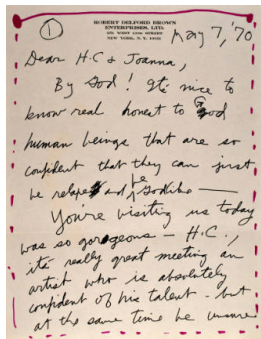 ①
ROBERT DELFORD BROWN
ENTERPRISES, LTD.
NEW YORK, N. Y. 10011
May 7, '70
Dear H.C & Joanna,
By God! It's nice to
know real honest to God
human beings that are so
confident that they can just
be relaxed and be Godlike —
Youre visiting us today
was so gorgeous — H.C.,
it's really great meeting an
artist who is absolutely
confident of his talent - but
at the same time be unsure